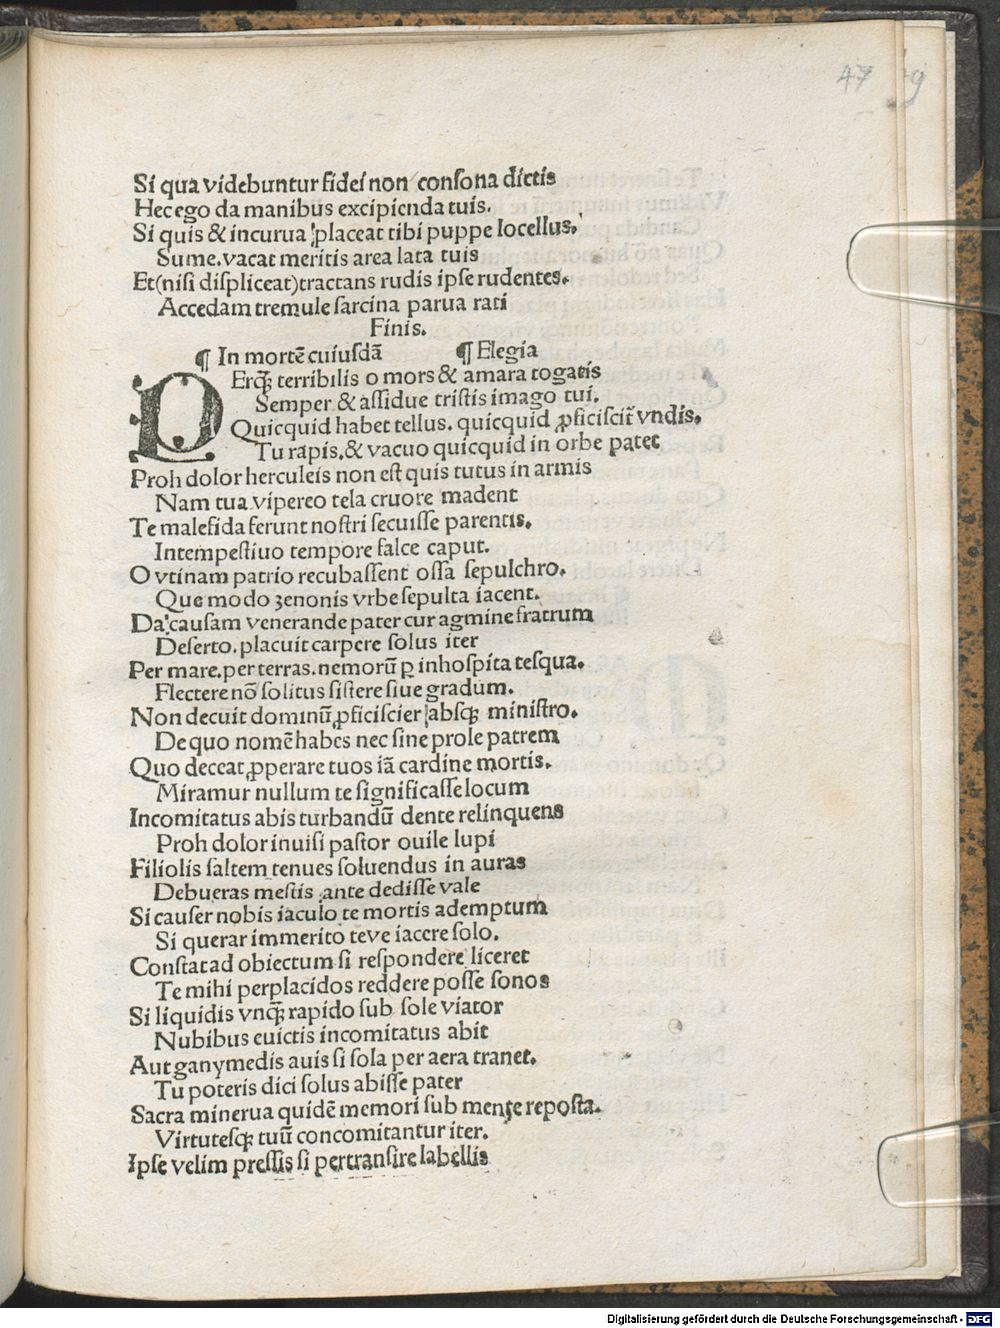 47 19
Si qua videbuntur fidei non consona dictis
Hec ego da manibus excipienda tuis.
Si quis & incurua placeat tibi puppe locellus.
Sume. vacat meritis area lata tuis
Et(nisi displiceat)tractans rudis ipse rudentes.
Accedam tremule sarcina parua rati
Finis.
¶ In mortē cuiusdā ¶ Elegia
QErqꝫ terribilis o mors & amara togatis
Semper & assidue tristis imago tui.
Quicquid habet tellus. quicquid ꝓficiscit᷑ vndis.
Tu rapis.& vacuo quicquid in orbe patet
Proh dolor herculeis non est quis tutus in armis
Nam tua vipereo tela cruore madent
Te malefida ferunt nostri secuisse parentis.
Intempestiuo tempore falce caput.
O vtinam patrio recubassent ossa sepulchro.
Que modo zenonis vrbe sepulta iacent.
Da causam venerande pater cur agmine fratrum
Deserto. placuit carpere solus iter
Per mare. per terras. nemorū ꝑ inhospita tesqua.
Flectere nō solitus sistere siue gradum.
Non decuit dominū ꝓficiscier absqꝫ ministro.
De quo nomē habes nec sine prole patrem
Quo deceat ꝓperare tuos iā cardine mortis.
Miramur nullum te significasse locum
Incomitatus abis turbandū dente relinquens
Proh dolor inuisi pastor ouile lupi
Filiolis saltem tenues soluendus in auras
Debueras mestis ante dedisse vale
Si causer nobis iaculo te mortis ademptum
Si querar immerito teve iacere solo.
Constat ad obiectum si respondere liceret
Te mihi perplacidos reddere posse sonos
Si liquidis vnqꝫ rapido sub sole viator
Nubibus euictis incomitatus abit
Aut ganymedis auis si sola per aera tranet.
Tu poteris dici solus abisse pater
Sacra minerua quidē memori sub mente reposta.
Virtutesqꝫ tuū concomitantur iter.
Ipse velim pressis si pertransire labellis
Digitalisierung gefördert durch die Deutsche Forschungsgemeinschaft - DFG